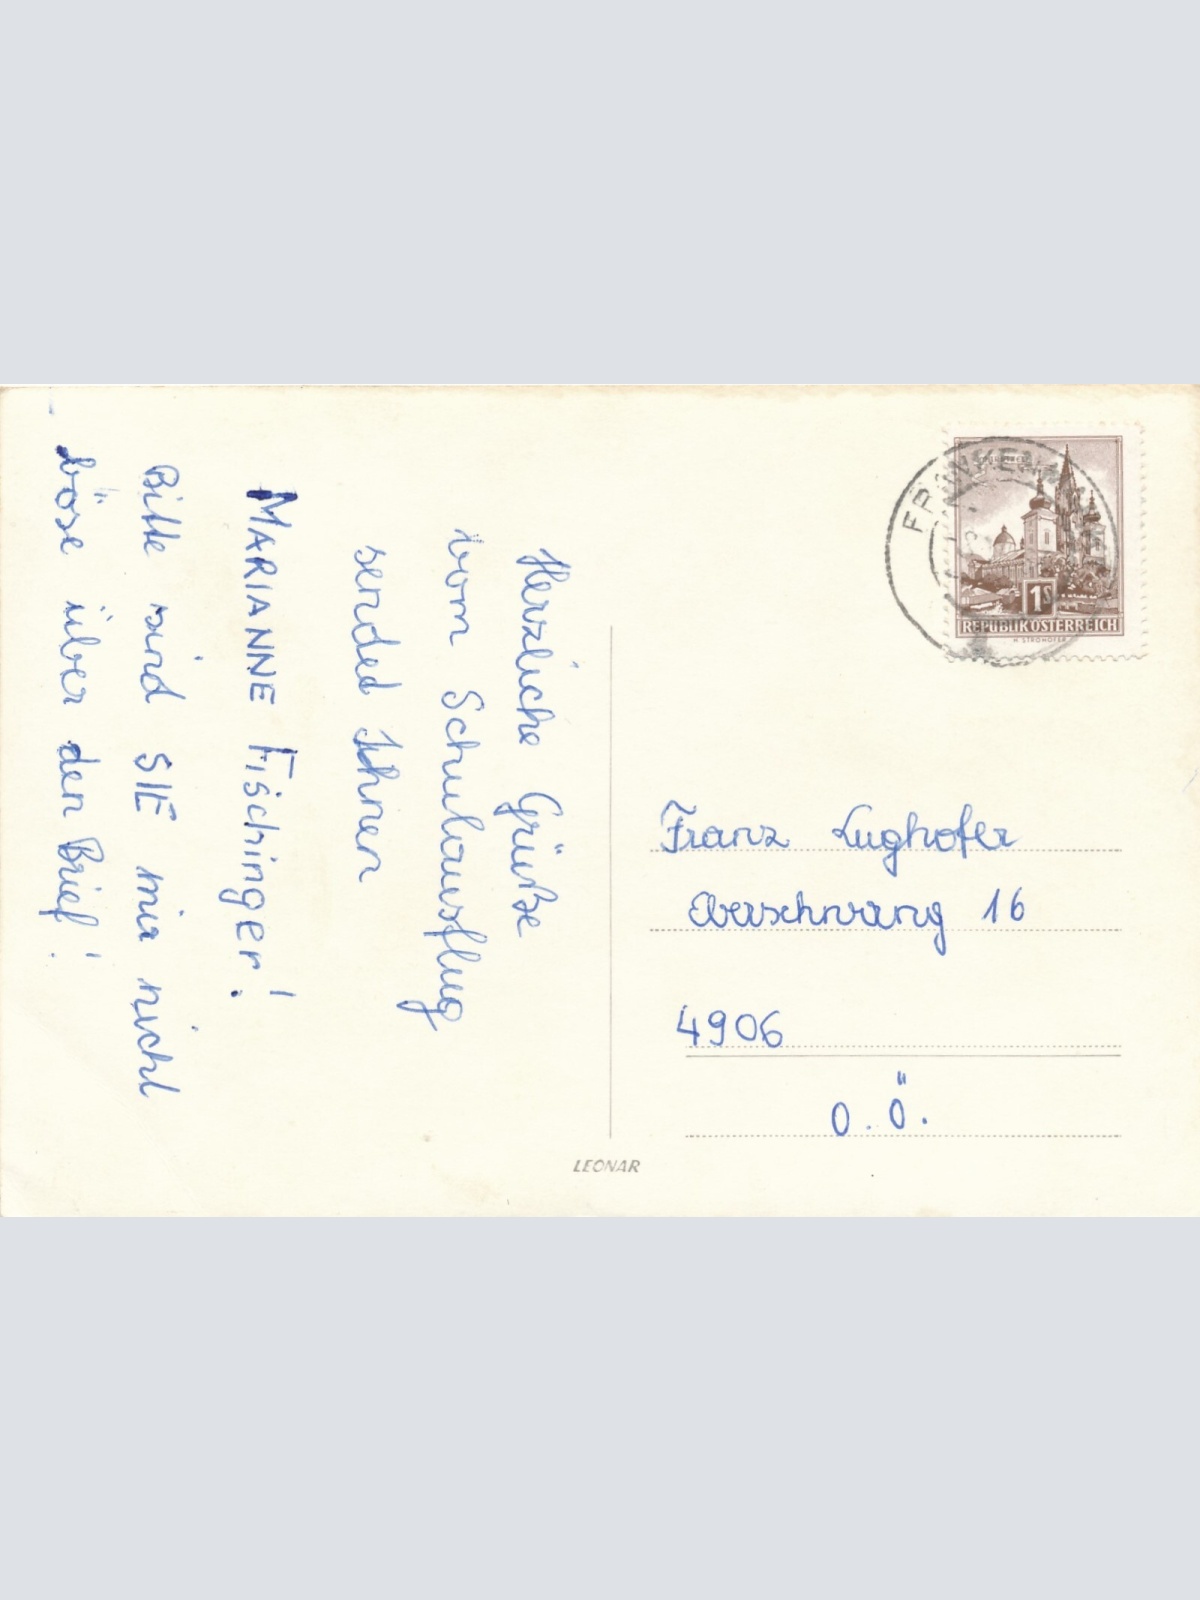 Herzliche Grüße
vom Schulausflug
sendet Ihnen
MARIANNE Fischinger!
Bitte sind SIE mir nicht
böse über den Brief!
1S
REPUBLIK ÖSTERREICH
H. STROHOFER
Franz Lughofer
Eberschwang 16
4906
O.Ö.
LEONAR